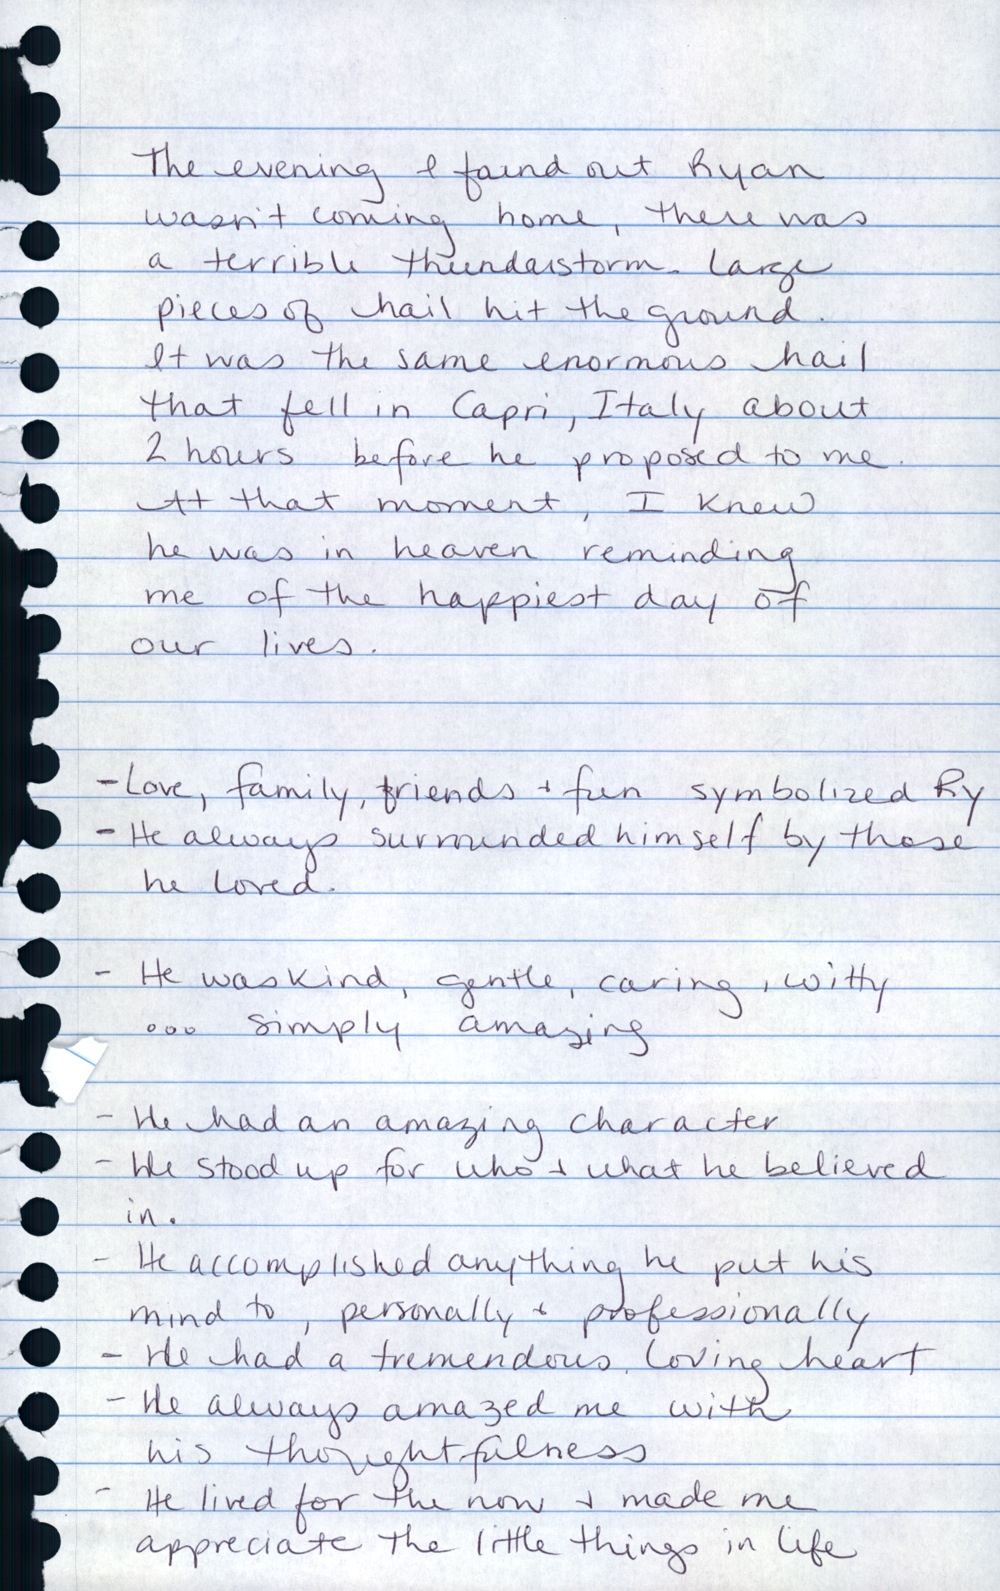 The evening I found out Ryan
wasn't coming home, there was
a terrible thunderstorm. Large
pieces of hail hit the ground.
It was the same enormous hail
that fell in Capri, Italy about
2 hours before he proposed to me.
At that moment, I knew
he was in heaven reminding
me of the happiest day of
our lives.
- Love, family, friends + fun symbolized Ry
- He always surrounded himself by those
he loved.
- He was kind, gentle, caring, witty
... simply amazing
- He had an amazing character
- He stood up for who + what he believed
in.
- He accomplished anything he put his
mind to, personally + professionally
- He had a tremendous, loving heart
- He always amazed me with
his thoughtfulness
- He lived for the now + made me
appreciate the little things in life